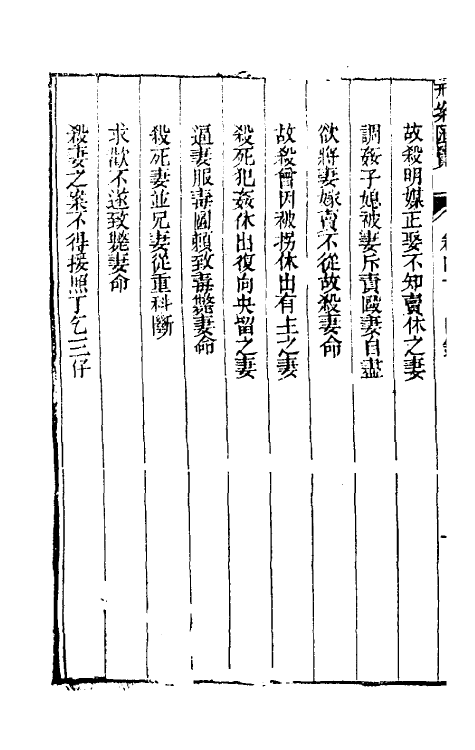 故殺明媒正娶不知賣休之妻
調姦子媳被妻斥責毆妻自盡
欲將妻嫁賣不從故殺妻命
故殺曾因被拐休出有主之妻
殺死犯姦休出復向央留之妻
逼妻服毒圖賴致毒斃妻命
殺死妻並兄妻從重科斷
求歡不遂致斃妻命
殺妻之案不得援照丁乞三仔